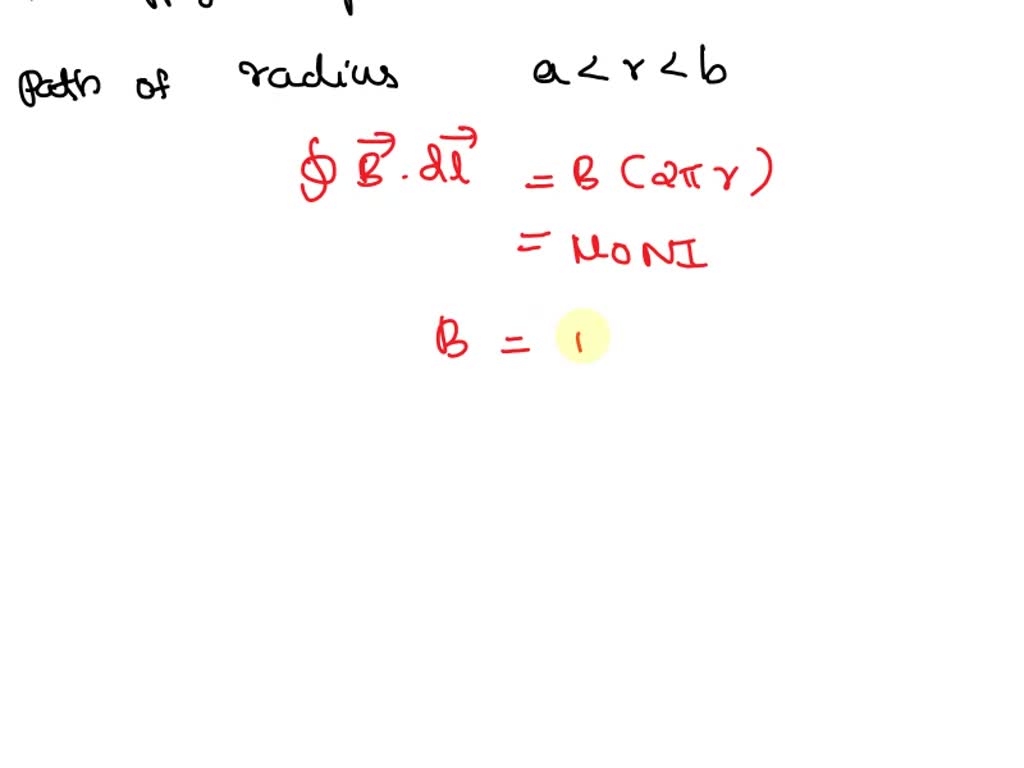 Path of radius a < r < b
∮ B⃗ . dl⃗ = B (2π r)
= μ0NI
B =